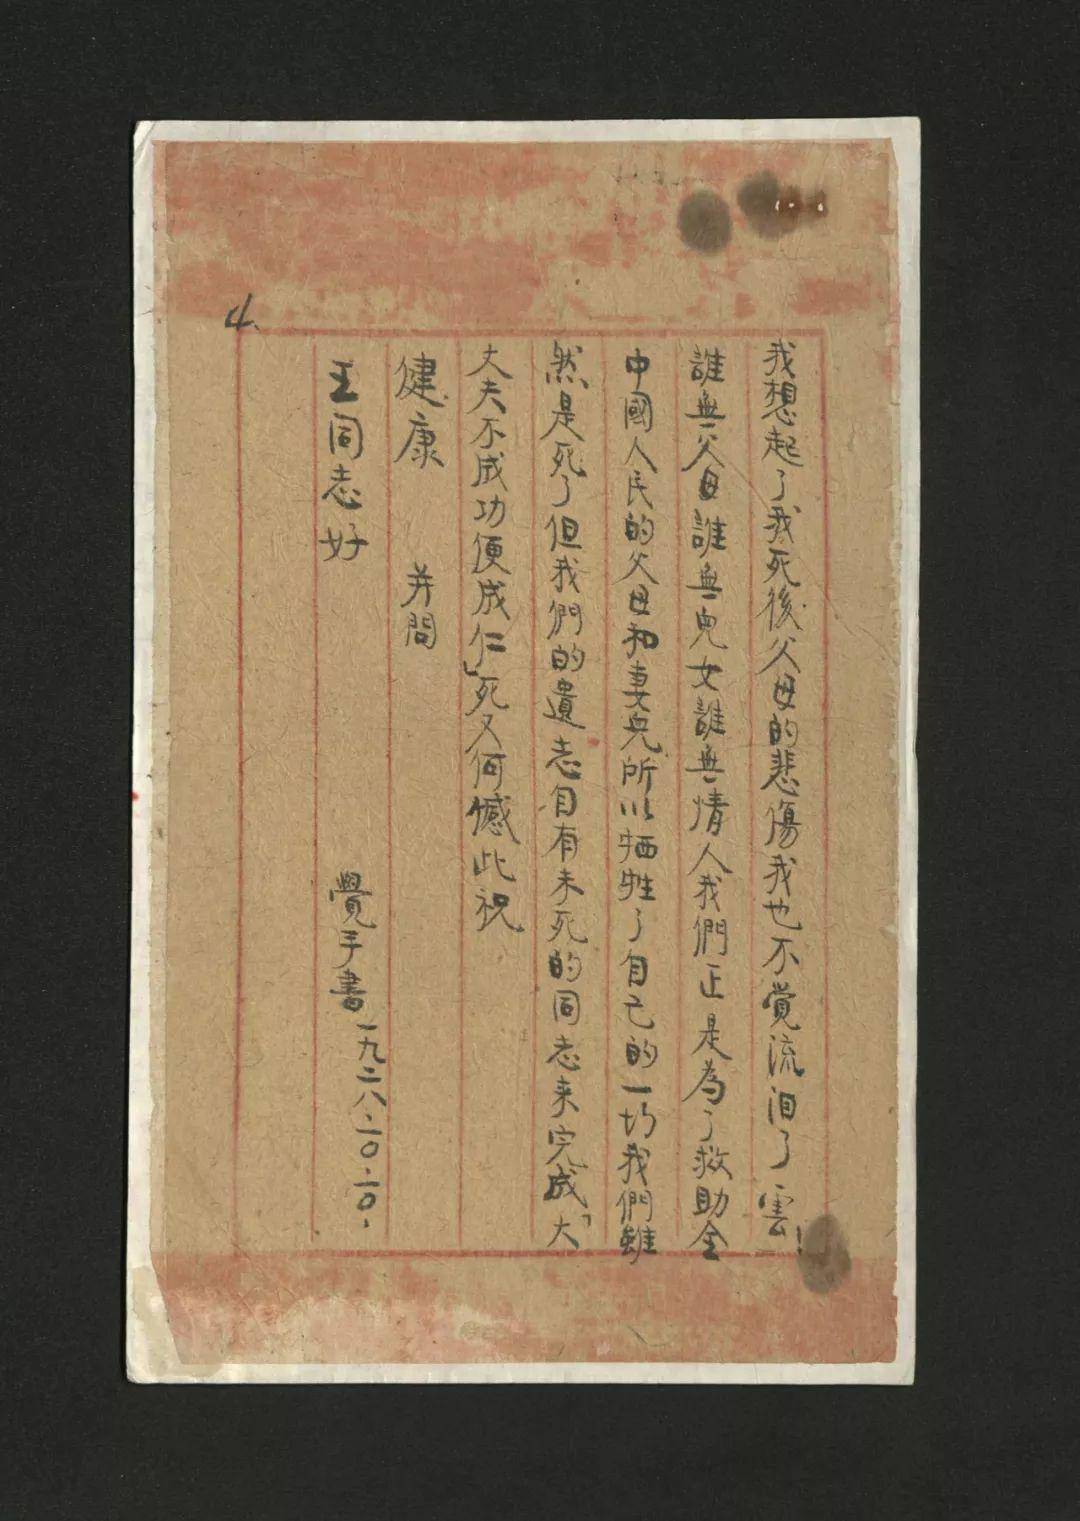 我想起了我死後父母的悲傷我也不覺流泪了雲!
誰無父母誰無兒女誰無情人我們正是為了救助全
中國人民的父母和妻兒所以牺牲了自己的一切我們雖
然是死了但我們的遺志自有未死的同志来完成「大
丈夫不成功便成仁」死又何憾此祝
健康 并問
王同志好
覺手書一九二八·一〇·一〇·
4.